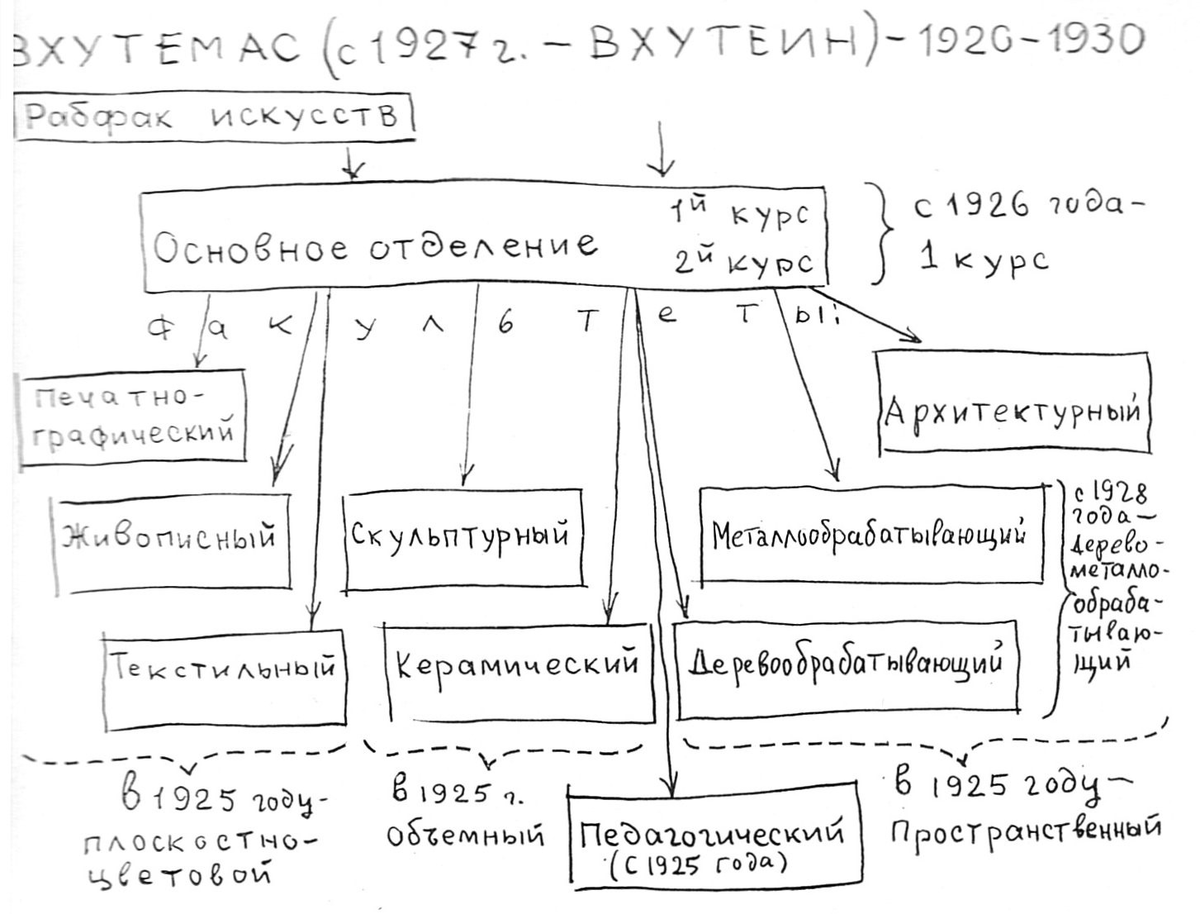 ВХУТЕМАС (с 1927 г. – ВХУТЕИН) – 1920–1930
Рабфак искусств
Основное отделение
1й курс
2й курс
с 1926 года –
1 курс
Факультеты:
Печатно-
графический
Архитектурный
Живописный
Скульптурный
Металлообрабатывающий
с 1928
года –
дерево-
металло-
обраба-
тываю-
щий
Текстильный
Керамический
Деревообрабатывающий
в 1925 году-
плоскостно-
цветовой
в 1925 г.
объемный
Педагогический
(с 1925 года)
в 1925 году –
Пространственный